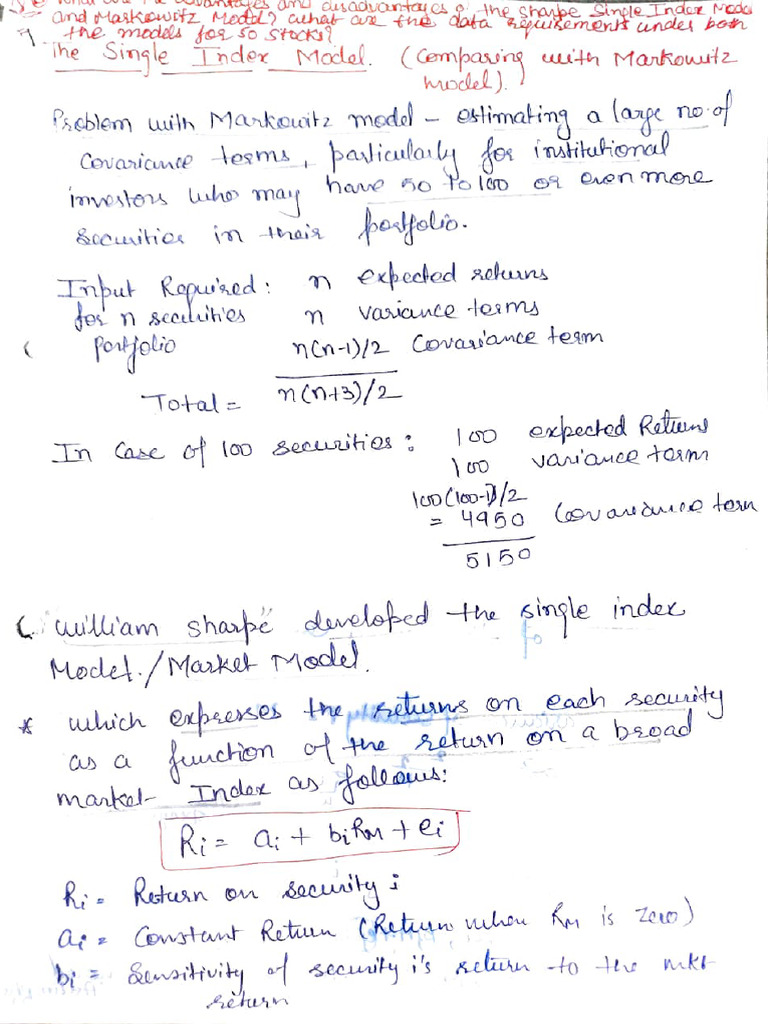 What are the advantages and disadvantages of the sharpe Single Index Model
and Markowitz Model? What are the data requirements under both
the models for 50 stocks?
The Single Index Model. (Comparing with Markowitz
model).
Problem with Markowitz model - estimating a large no. of
Covariance terms, particularly for institutional
investors who may have 50 to 100 or even more
securities in their portfolio.
Input Required: n expected returns
for n securities n variance terms
portfolio n(n-1)/2 Covariance term
Total = n(n+3)/2
In Case of 100 securities: 100 expected Returns
100 variance term
100(100-1)/2
= 4950 Covariance term
5150
William sharpe developed the single index
Model./Market Model.
* which expresses the returns on each security
as a function of the return on a broad
market- Index as follows:
Ri = ai + biRM + ei
Ri = Return on security i
ai = Constant Return (Return when RM is zero)
bi = Sensitivity of security i's return to the mkt-
return